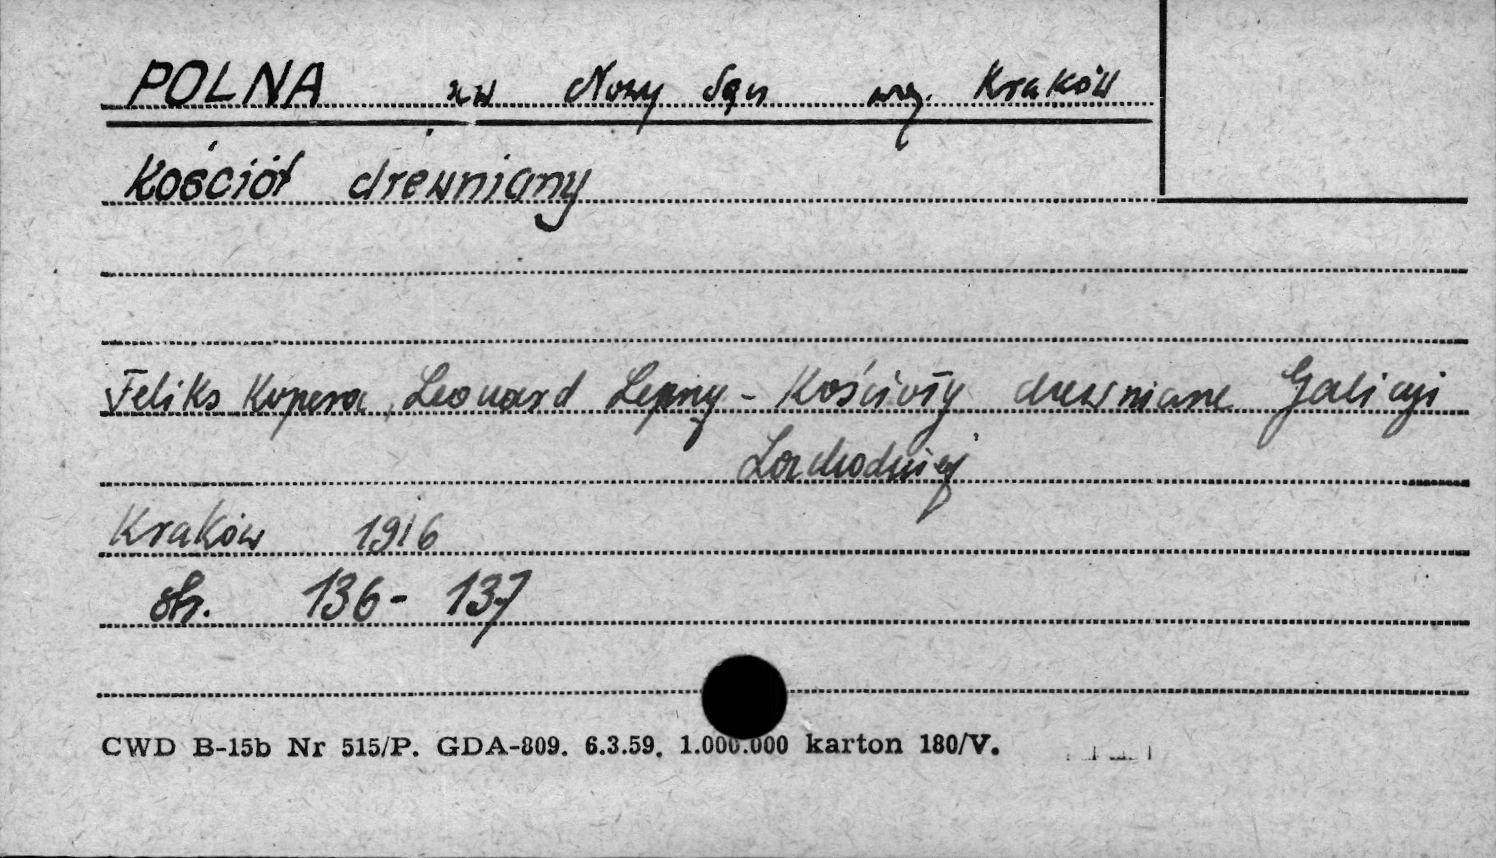 POLNA xw Nowy Sącz woj. Kraków
Kościół drewniany
Feliks Kopera, Leonard Lepszy - Kościoły drewniane Galicji
Zachodniej
Kraków 1916
str. 136-137
CWD B-15b Nr 515/P. GDA-809. 6.3.59. 1.000.000 karton 180/V.